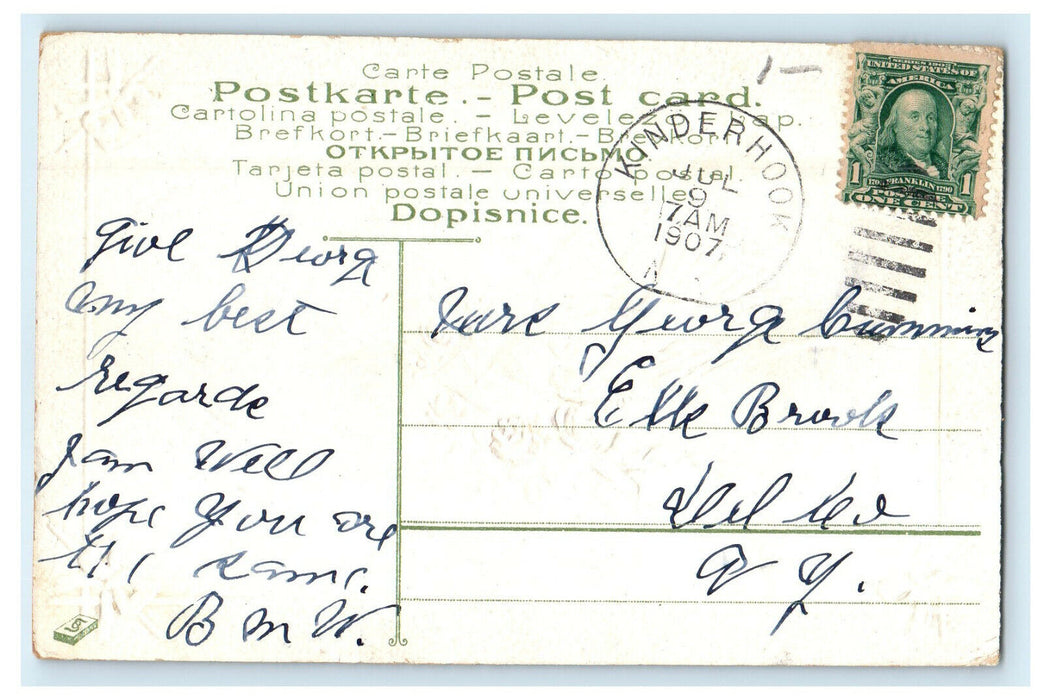 Carte Postale.
Postkarte. - Post card.
Cartolina postale. - Levelező-Lap.
Brefkort.-Briefkaart.-Brevkort
ОТКРЫТОЕ ПИСЬМО
Tarjeta postal. - Carto postal.
Union postale universelle
Dopisnice.
KINDERHOOK
JUL
9
7AM
1907
N
SERIES 1902
UNITED STATES OF
AMERICA
1706 FRANKLIN 1790
1 POSTAGE 1
ONE CENT
Give George
my best
regards
I am Well
hope you are
the same.
B M W.
Mrs George Cummings
Elk Brook
Del Co
N Y.